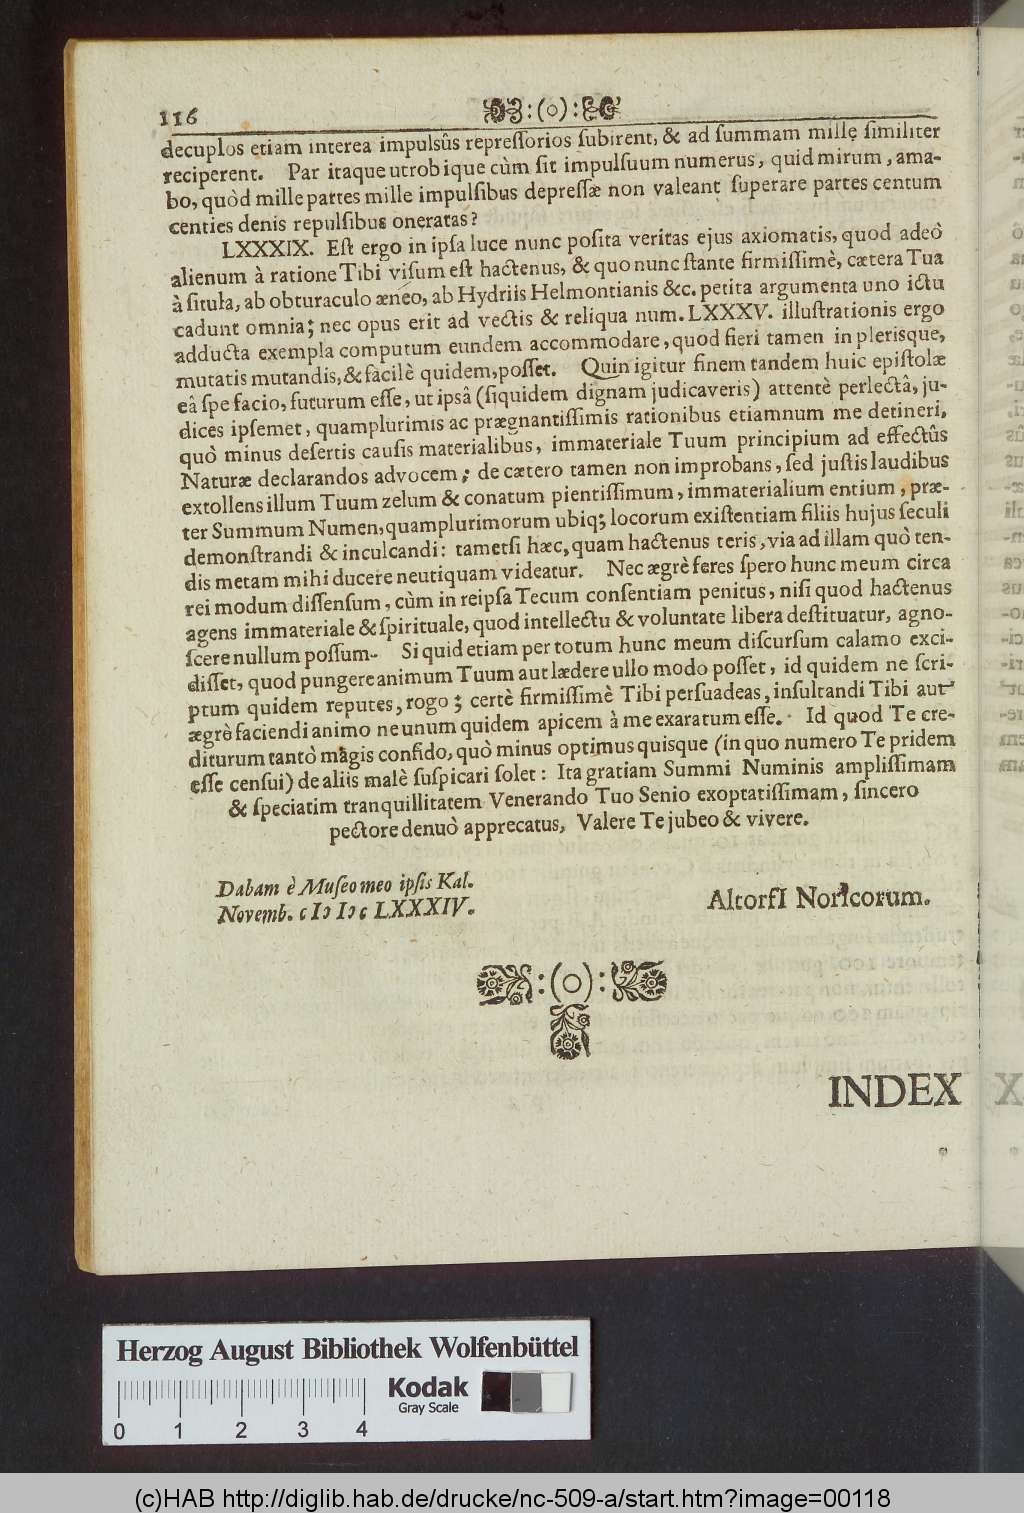 116 :(o):
decuplos etiam interea impulsûs repreſſorios ſubirent, & ad ſummam millę ſimiliter
reciperent. Par itaque utrobique cùm ſit impulſuum numerus, quid mirum, ama-
bo, quòd mille partes mille impulſibus depreſſæ non valeant ſuperare partes centum
centies denis repulſibus oneratas?
LXXXIX. Eſt ergo in ipſa luce nunc poſita veritas ejus axiomatis, quod adeò
alienum à ratione Tibi viſum eſt hactenus, & quo nunc ſtante firmiſſimè, cætera Tua
à ſitula, ab obturaculo æneo, ab Hydriis Helmontianis &c. petita argumenta uno ictu
cadunt omnia; nec opus erit ad vectis & reliqua num. LXXXV. illuſtrationis ergo
adducta exempla computum eundem accommodare, quod fieri tamen in plerisque,
mutatis mutandis, & facilè quidem, poſſet. Quin igitur finem tandem huic epiſtolæ
eâ ſpe facio, futurum eſſe, ut ipsâ (ſiquidem dignam judicaveris) attentè perlectâ, ju-
dices ipſemet, quamplurimis ac prægnantiſſimis rationibus etiamnum me detineri,
quò minus deſertis cauſis materialibus, immateriale Tuum principium ad effectûs
Naturæ declarandos advocem; de cætero tamen non improbans, ſed juſtis laudibus
extollens illum Tuum zelum & conatum pientiſſimum, immaterialium entium, præ-
ter Summum Numen, quamplurimorum ubiq; locorum exiſtentiam filiis hujus ſeculi
demonſtrandi & inculcandi: tametſi hæc, quam hactenus teris, via ad illam quò ten-
dis metam mihi ducere neutiquam videatur. Nec ægrè feres ſpero hunc meum circa
rei modum diſſenſum, cùm in reipſa Tecum conſentiam penitus, niſi quod hactenus
agens immateriale & ſpirituale, quod intellectu & voluntate libera deſtituatur, agno-
ſcere nullum poſſum. Si quid etiam per totum hunc meum diſcurſum calamo exci-
diſſet, quod pungere animum Tuum aut lædere ullo modo poſſet, id quidem ne ſcri-
ptum quidem reputes, rogo; certè firmiſſimè Tibi perſuadeas, inſultandi Tibi aut
ægrè faciendi animo ne unum quidem apicem à me exaratum eſſe. Id quod Te cre-
diturum tantò magis confido, quò minus optimus quisque (in quo numero Te pridem
eſſe cenſui) de aliis malè ſuſpicari ſolet: Ita gratiam Summi Numinis ampliſſimam
& ſpeciatim tranquillitatem Venerando Tuo Senio exoptatiſſimam, ſincero
pectore denuò apprecatus, Valere Te jubeo & vivere.
Dabam è Muſeo meo ipſis Kal.
Novemb. cIↄ Iↄc LXXXIV.
AltorfI NorIcorum.
:(o):
INDEX
Herzog August Bibliothek Wolfenbüttel
Kodak
Gray Scale
0 1 2 3 4
(c)HAB http://diglib.hab.de/drucke/nc-509-a/start.htm?image=00118